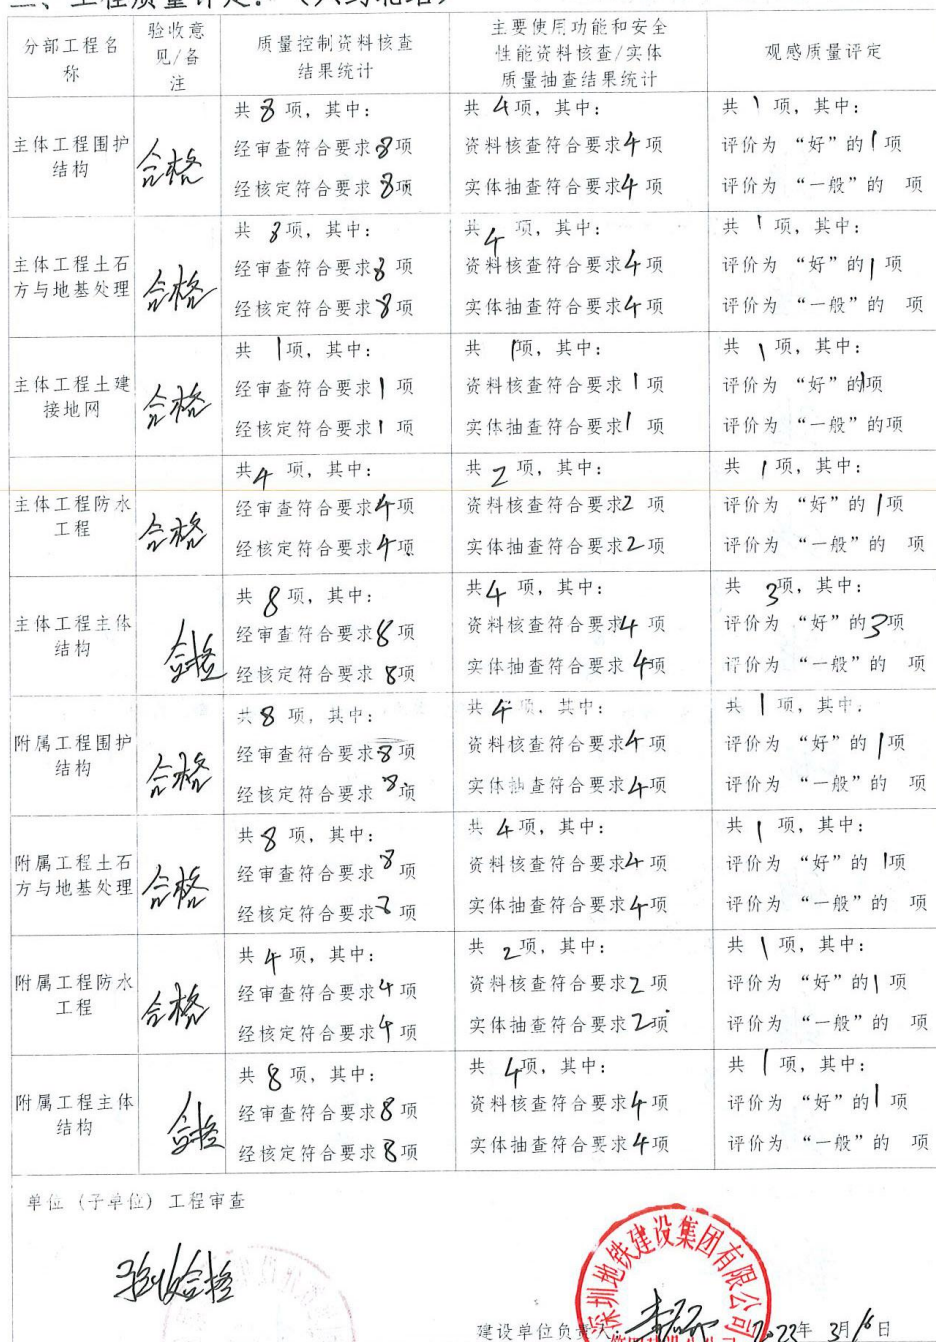 二、工程质量评定：（共
分部工程名称
验收意见/备注
质量控制资料核查结果统计
主要使用功能和安全性能资料核查/实体质量抽查结果统计
观感质量评定
主体工程围护结构
合格
共 8 项，其中：
经审查符合要求 8 项
经核定符合要求 8 项
共 4 项，其中：
资料核查符合要求 4 项
实体抽查符合要求 4 项
共 1 项，其中：
评价为 “好”的 1 项
评价为 “一般”的 项
主体工程土石方与地基处理
合格
共 8 项，其中：
经审查符合要求 8 项
经核定符合要求 8 项
共 4 项，其中：
资料核查符合要求 4 项
实体抽查符合要求 4 项
共 1 项，其中：
评价为 “好”的 1 项
评价为 “一般”的 项
主体工程土建接地网
合格
共 1 项，其中：
经审查符合要求 1 项
经核定符合要求 1 项
共 1 项，其中：
资料核查符合要求 1 项
实体抽查符合要求 1 项
共 1 项，其中：
评价为 “好”的 1 项
评价为 “一般”的 项
主体工程防水工程
合格
共 4 项，其中：
经审查符合要求 4 项
经核定符合要求 4 项
共 2 项，其中：
资料核查符合要求 2 项
实体抽查符合要求 2 项
共 1 项，其中：
评价为 “好”的 1 项
评价为 “一般”的 项
主体工程主体结构
合格
共 8 项，其中：
经审查符合要求 8 项
经核定符合要求 8 项
共 4 项，其中：
资料核查符合要求 4 项
实体抽查符合要求 4 项
共 3 项，其中：
评价为 “好”的 3 项
评价为 “一般”的 项
附属工程围护结构
合格
共 8 项，其中：
经审查符合要求 8 项
经核定符合要求 8 项
共 4 项，其中：
资料核查符合要求 4 项
实体抽查符合要求 4 项
共 1 项，其中：
评价为 “好”的 1 项
评价为 “一般”的 项
附属工程土石方与地基处理
合格
共 8 项，其中：
经审查符合要求 8 项
经核定符合要求 8 项
共 4 项，其中：
资料核查符合要求 4 项
实体抽查符合要求 4 项
共 1 项，其中：
评价为 “好”的 1 项
评价为 “一般”的 项
附属工程防水工程
合格
共 4 项，其中：
经审查符合要求 4 项
经核定符合要求 4 项
共 2 项，其中：
资料核查符合要求 2 项
实体抽查符合要求 2 项
共 1 项，其中：
评价为 “好”的 1 项
评价为 “一般”的 项
附属工程主体结构
合格
共 8 项，其中：
经审查符合要求 8 项
经核定符合要求 8 项
共 4 项，其中：
资料核查符合要求 4 项
实体抽查符合要求 4 项
共 1 项，其中：
评价为 “好”的 1 项
评价为 “一般”的 项
单位（子单位）工程审查
验收合格
深圳地铁建设集团有限公司
建设单位负责人 2022年 3月16日